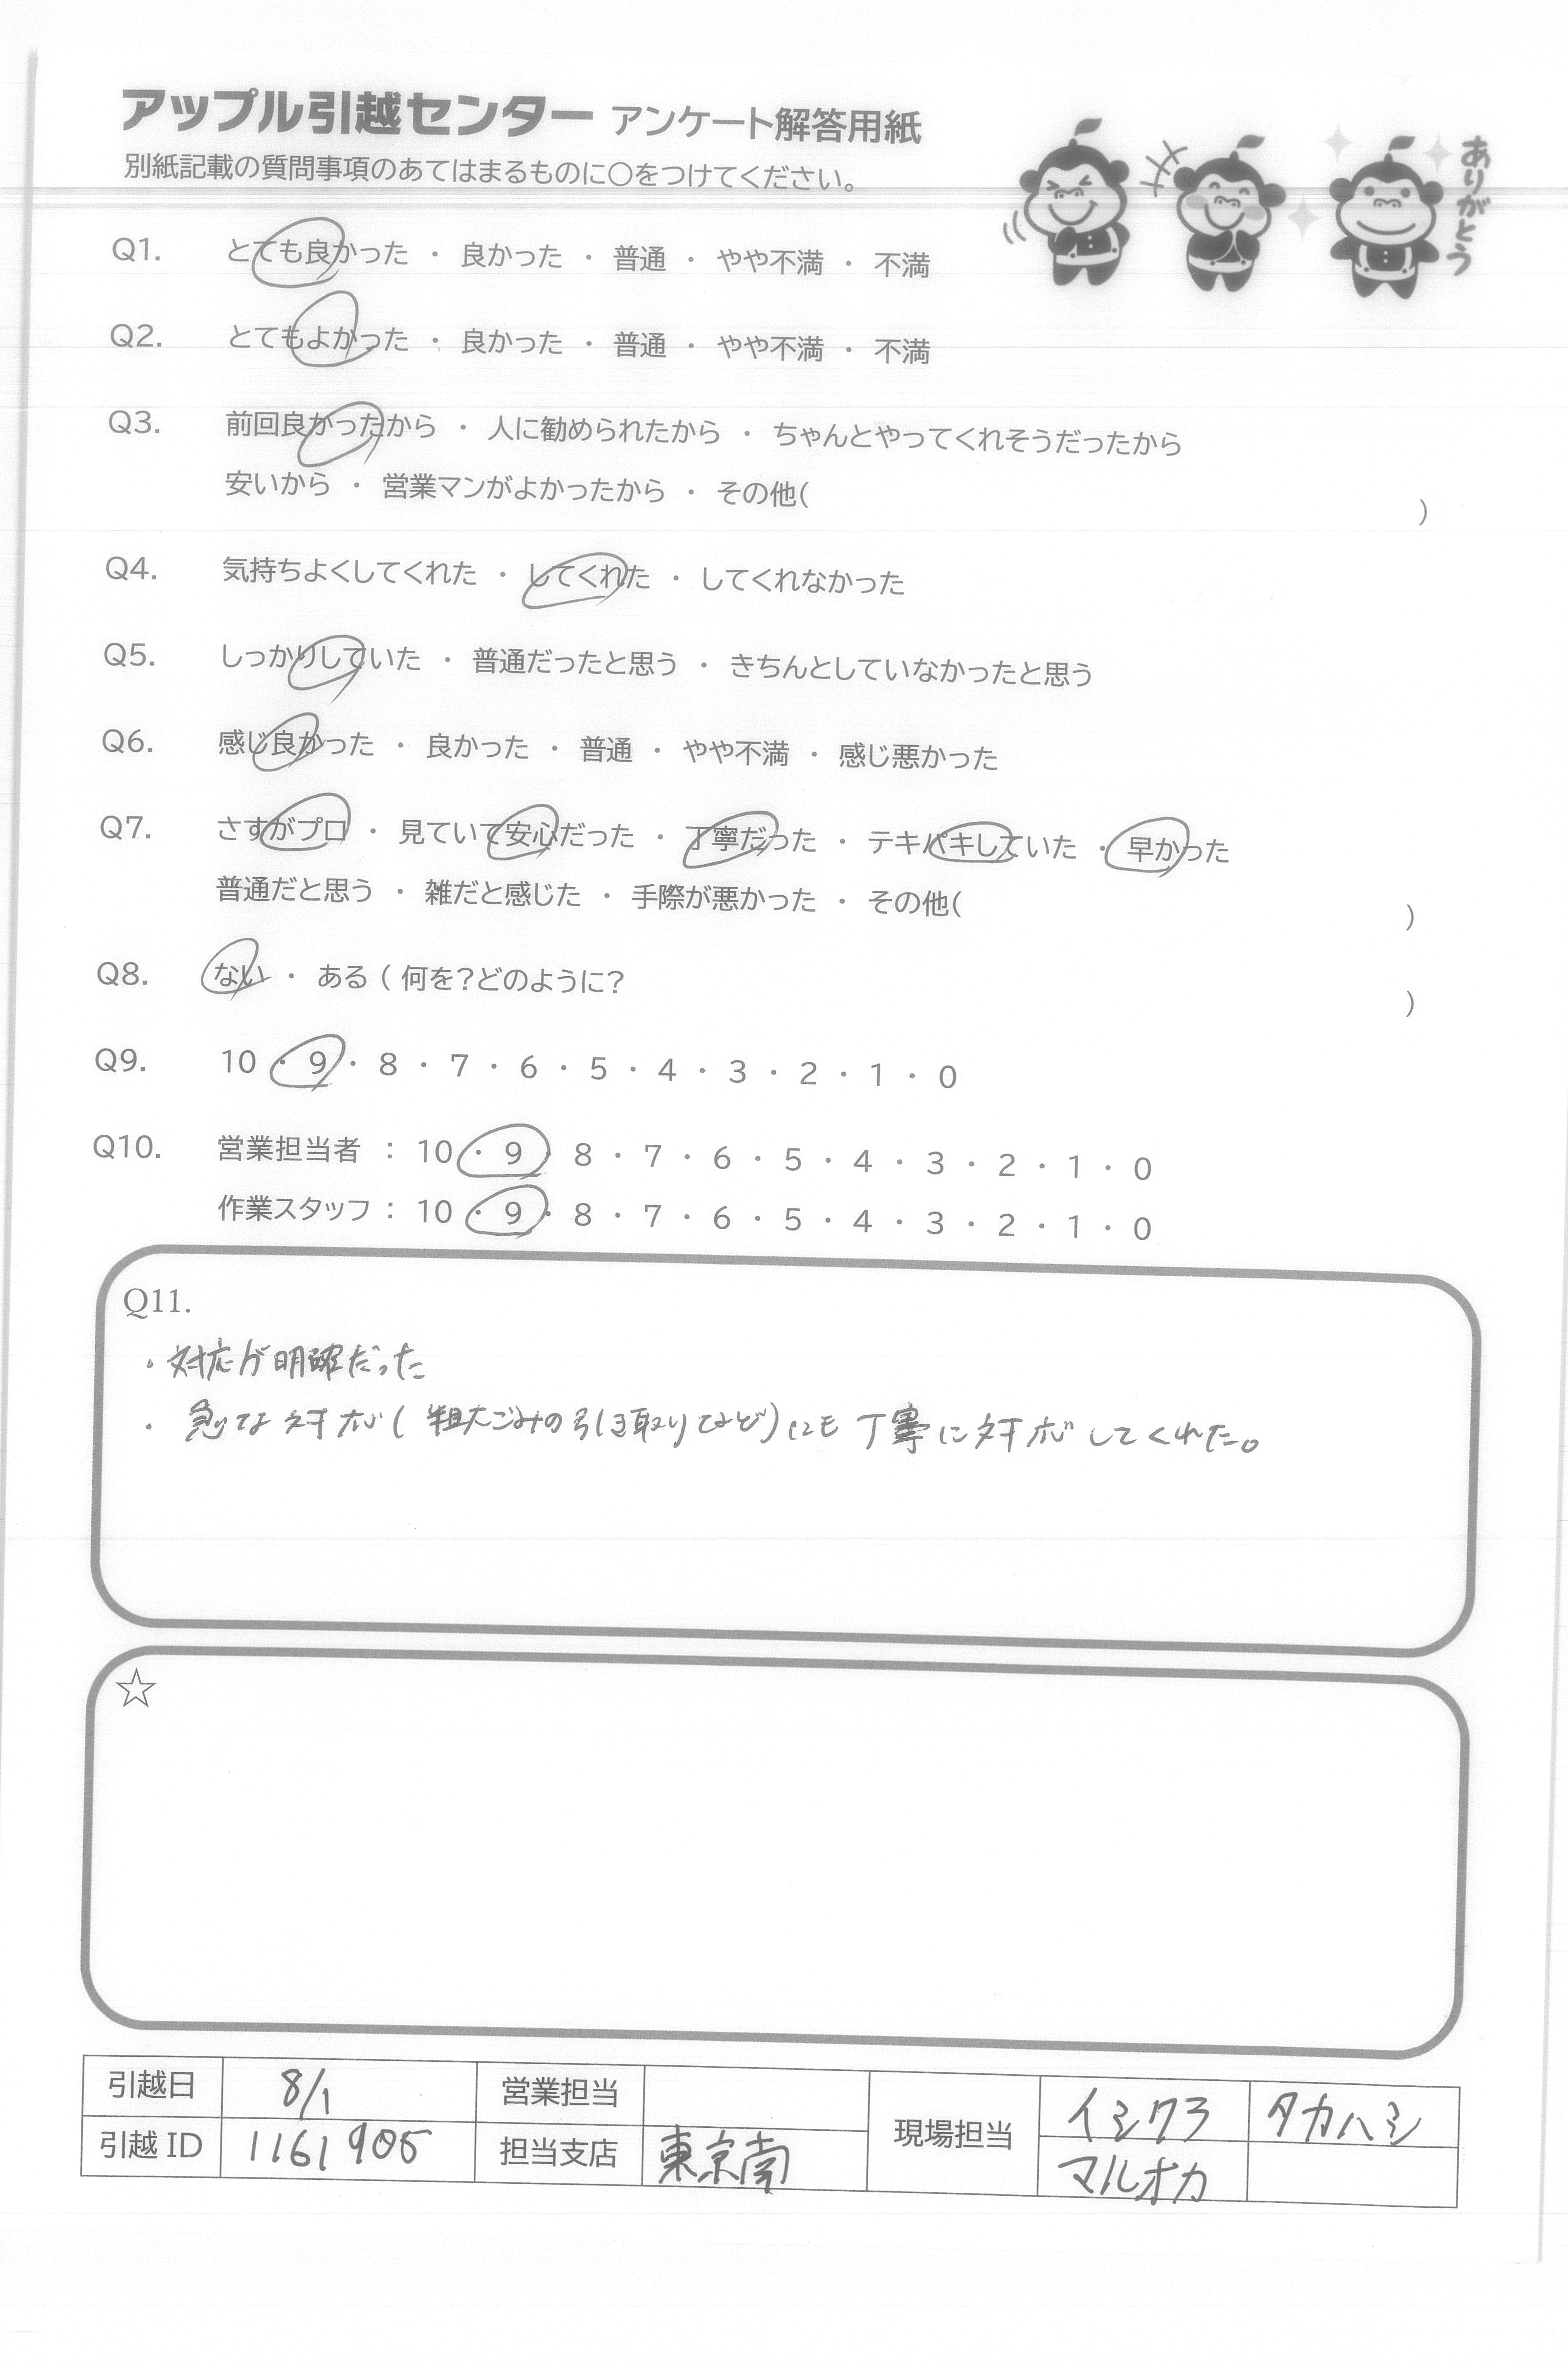 アップル引越センター アンケート解答用紙
別紙記載の質問事項のあてはまるものに〇をつけてください。
ありがとう
Q1. とても良かった ・ 良かった ・ 普通 ・ やや不満 ・ 不満
Q2. とてもよかった ・ 良かった ・ 普通 ・ やや不満 ・ 不満
Q3. 前回良かったから ・ 人に勧められたから ・ ちゃんとやってくれそうだったから
安いから ・ 営業マンがよかったから ・ その他( )
Q4. 気持ちよくしてくれた ・ してくれた ・ してくれなかった
Q5. しっかりしていた ・ 普通だったと思う ・ きちんとしていなかったと思う
Q6. 感じ良かった ・ 良かった ・ 普通 ・ やや不満 ・ 感じ悪かった
Q7. さすがプロ ・ 見ていて安心だった ・ 丁寧だった ・ テキパキしていた ・ 早かった
普通だと思う ・ 雑だと感じた ・ 手際が悪かった ・ その他( )
Q8. ない ・ ある ( 何を?どのように? )
Q9. 10 ・ 9 ・ 8 ・ 7 ・ 6 ・ 5 ・ 4 ・ 3 ・ 2 ・ 1 ・ 0
Q10. 営業担当者 : 10 ・ 9 ・ 8 ・ 7 ・ 6 ・ 5 ・ 4 ・ 3 ・ 2 ・ 1 ・ 0
作業スタッフ : 10 ・ 9 ・ 8 ・ 7 ・ 6 ・ 5 ・ 4 ・ 3 ・ 2 ・ 1 ・ 0
Q11.
・対応が明確だった
・急な対応(粗大ごみの引き取りなど)にも丁寧に対応してくれた。
☆
引越日 8/1 営業担当 現場担当 イシクラ タカハシ
引越 ID 1161905 担当支店 東京南 マルオカ